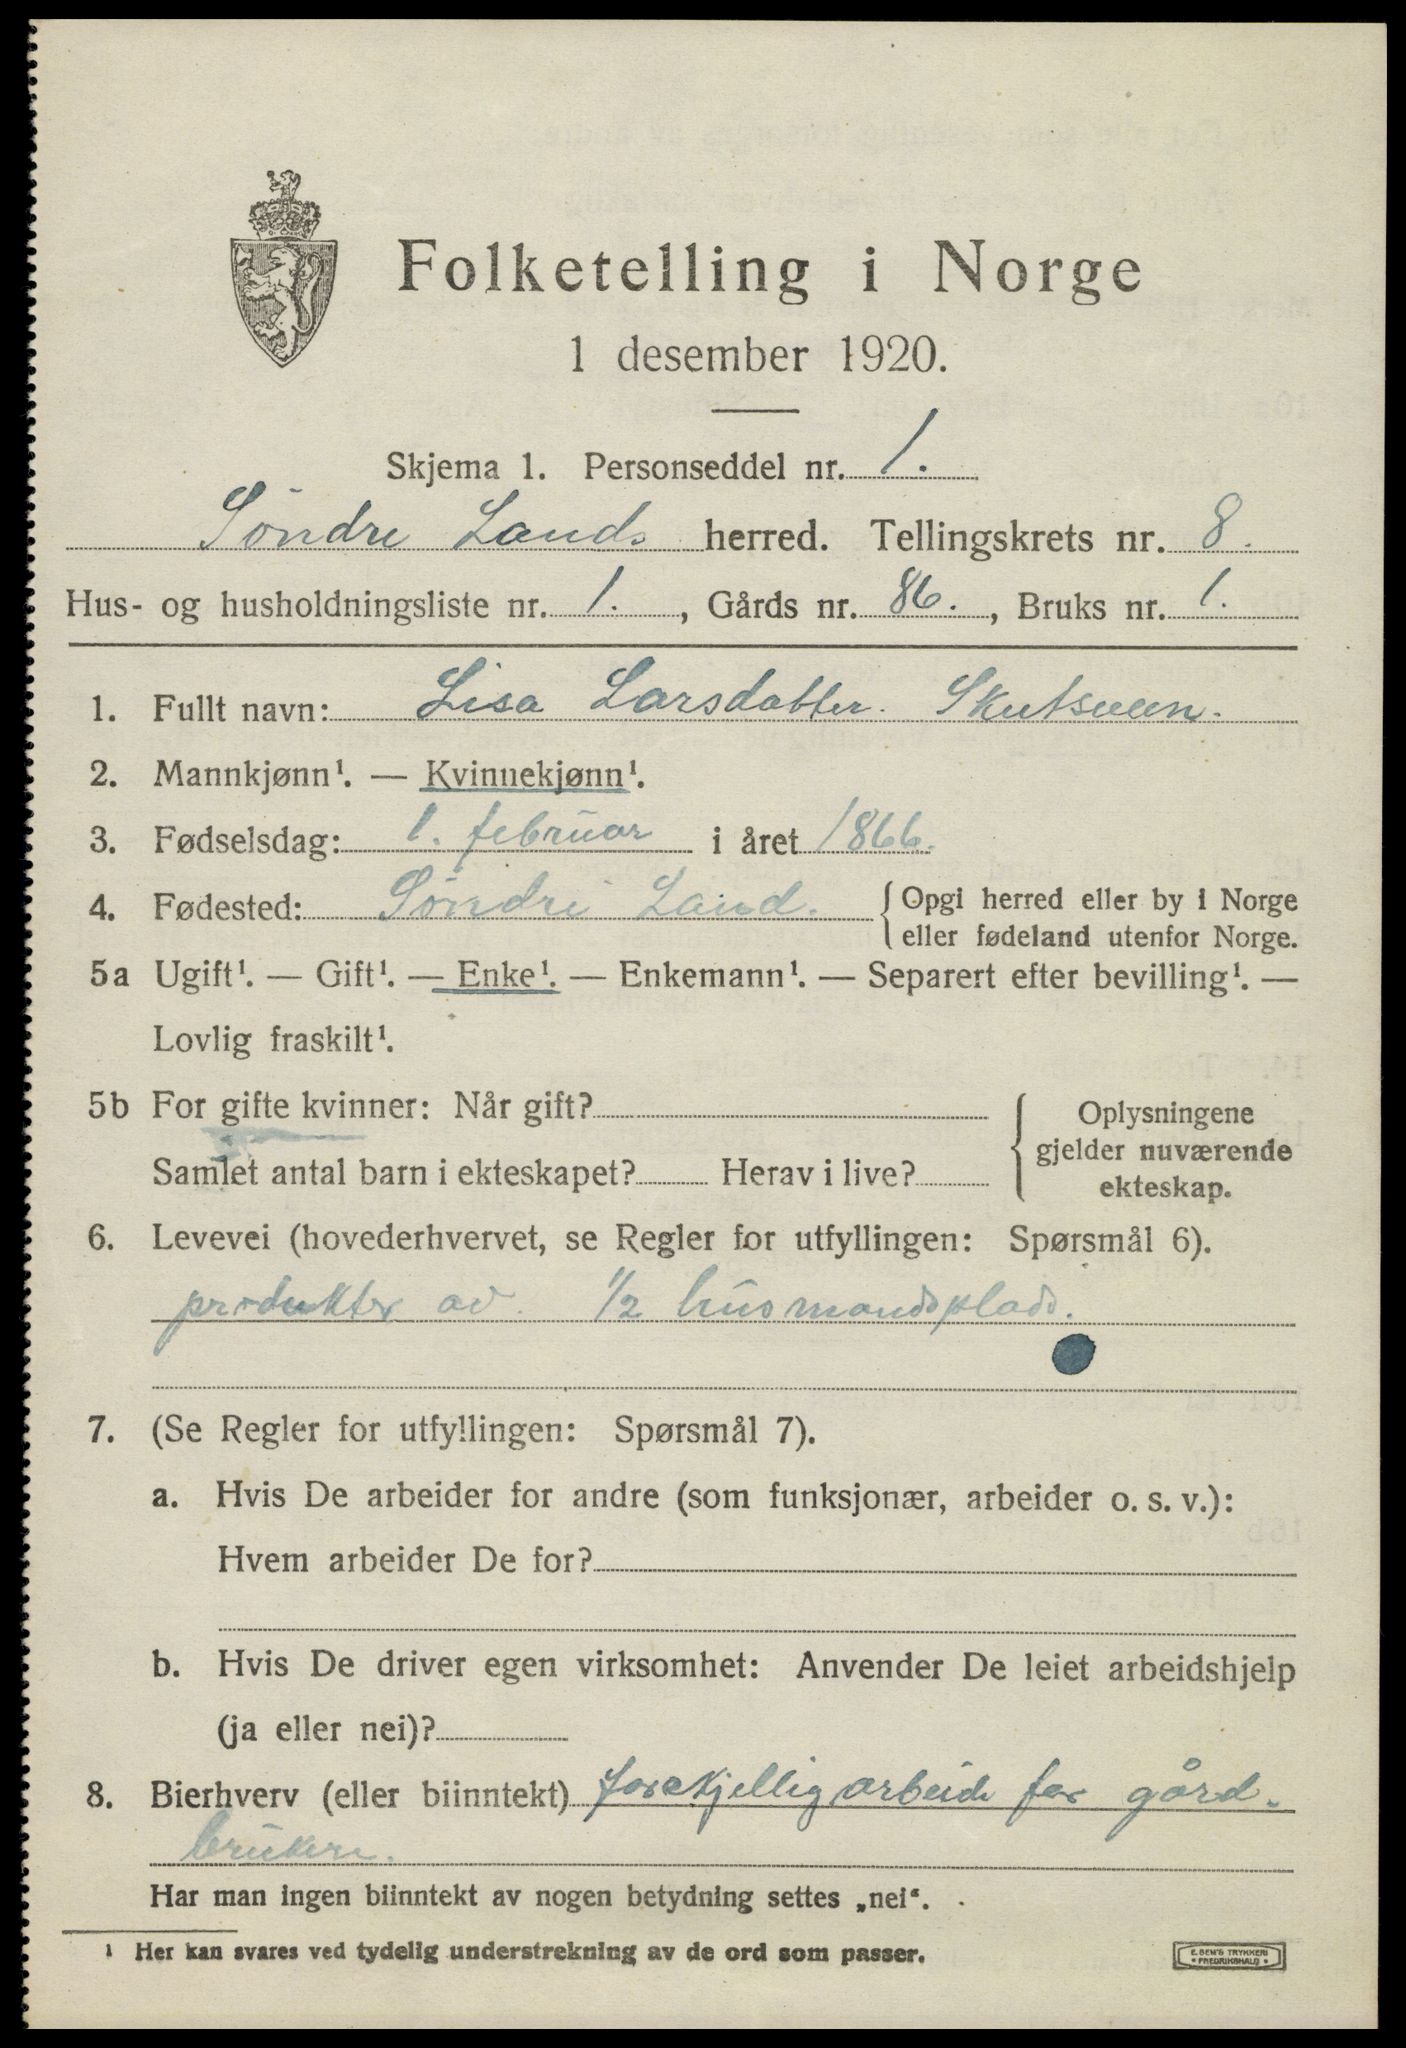 Folketelling i Norge
1 desember 1920.
Skjema 1. Personseddel nr. 1.
Søndre Lands herred. Tellingskrets nr. 8.
Hus- og husholdningsliste nr. 1., Gårds nr. 86., Bruks nr. 1.
1. Fullt navn: Lisa Larsdatter. Skutsveen.
2. Mannkjønn¹. — Kvinnekjønn¹.
3. Fødselsdag: 1. februar i året 1866.
4. Fødested: Søndre Land. {Opgi herred eller by i Norge
eller fødeland utenfor Norge.
5a Ugift¹. — Gift¹. — Enke¹. — Enkemann¹. — Separert efter bevilling¹. —
Lovlig fraskilt¹.
5b For gifte kvinner: Når gift?
Samlet antal barn i ekteskapet? Herav i live?
Oplysningene
gjelder nuværende
ekteskap.
6. Levevei (hovederhvervet, se Regler for utfyllingen: Spørsmål 6).
produkter av 1/2 husmandsplads.
7. (Se Regler for utfyllingen: Spørsmål 7).
a. Hvis De arbeider for andre (som funksjonær, arbeider o. s. v.):
Hvem arbeider De for?
b. Hvis De driver egen virksomhet: Anvender De leiet arbeidshjelp
(ja eller nei)?
8. Bierhverv (eller biinntekt) forskjellig arbeide for gård-
brukere.
Har man ingen biinntekt av nogen betydning settes „nei“.
¹ Her kan svares ved tydelig understrekning av de ord som passer.
E. SEM'S TRYKKERI
• FREDRIKSHALD •